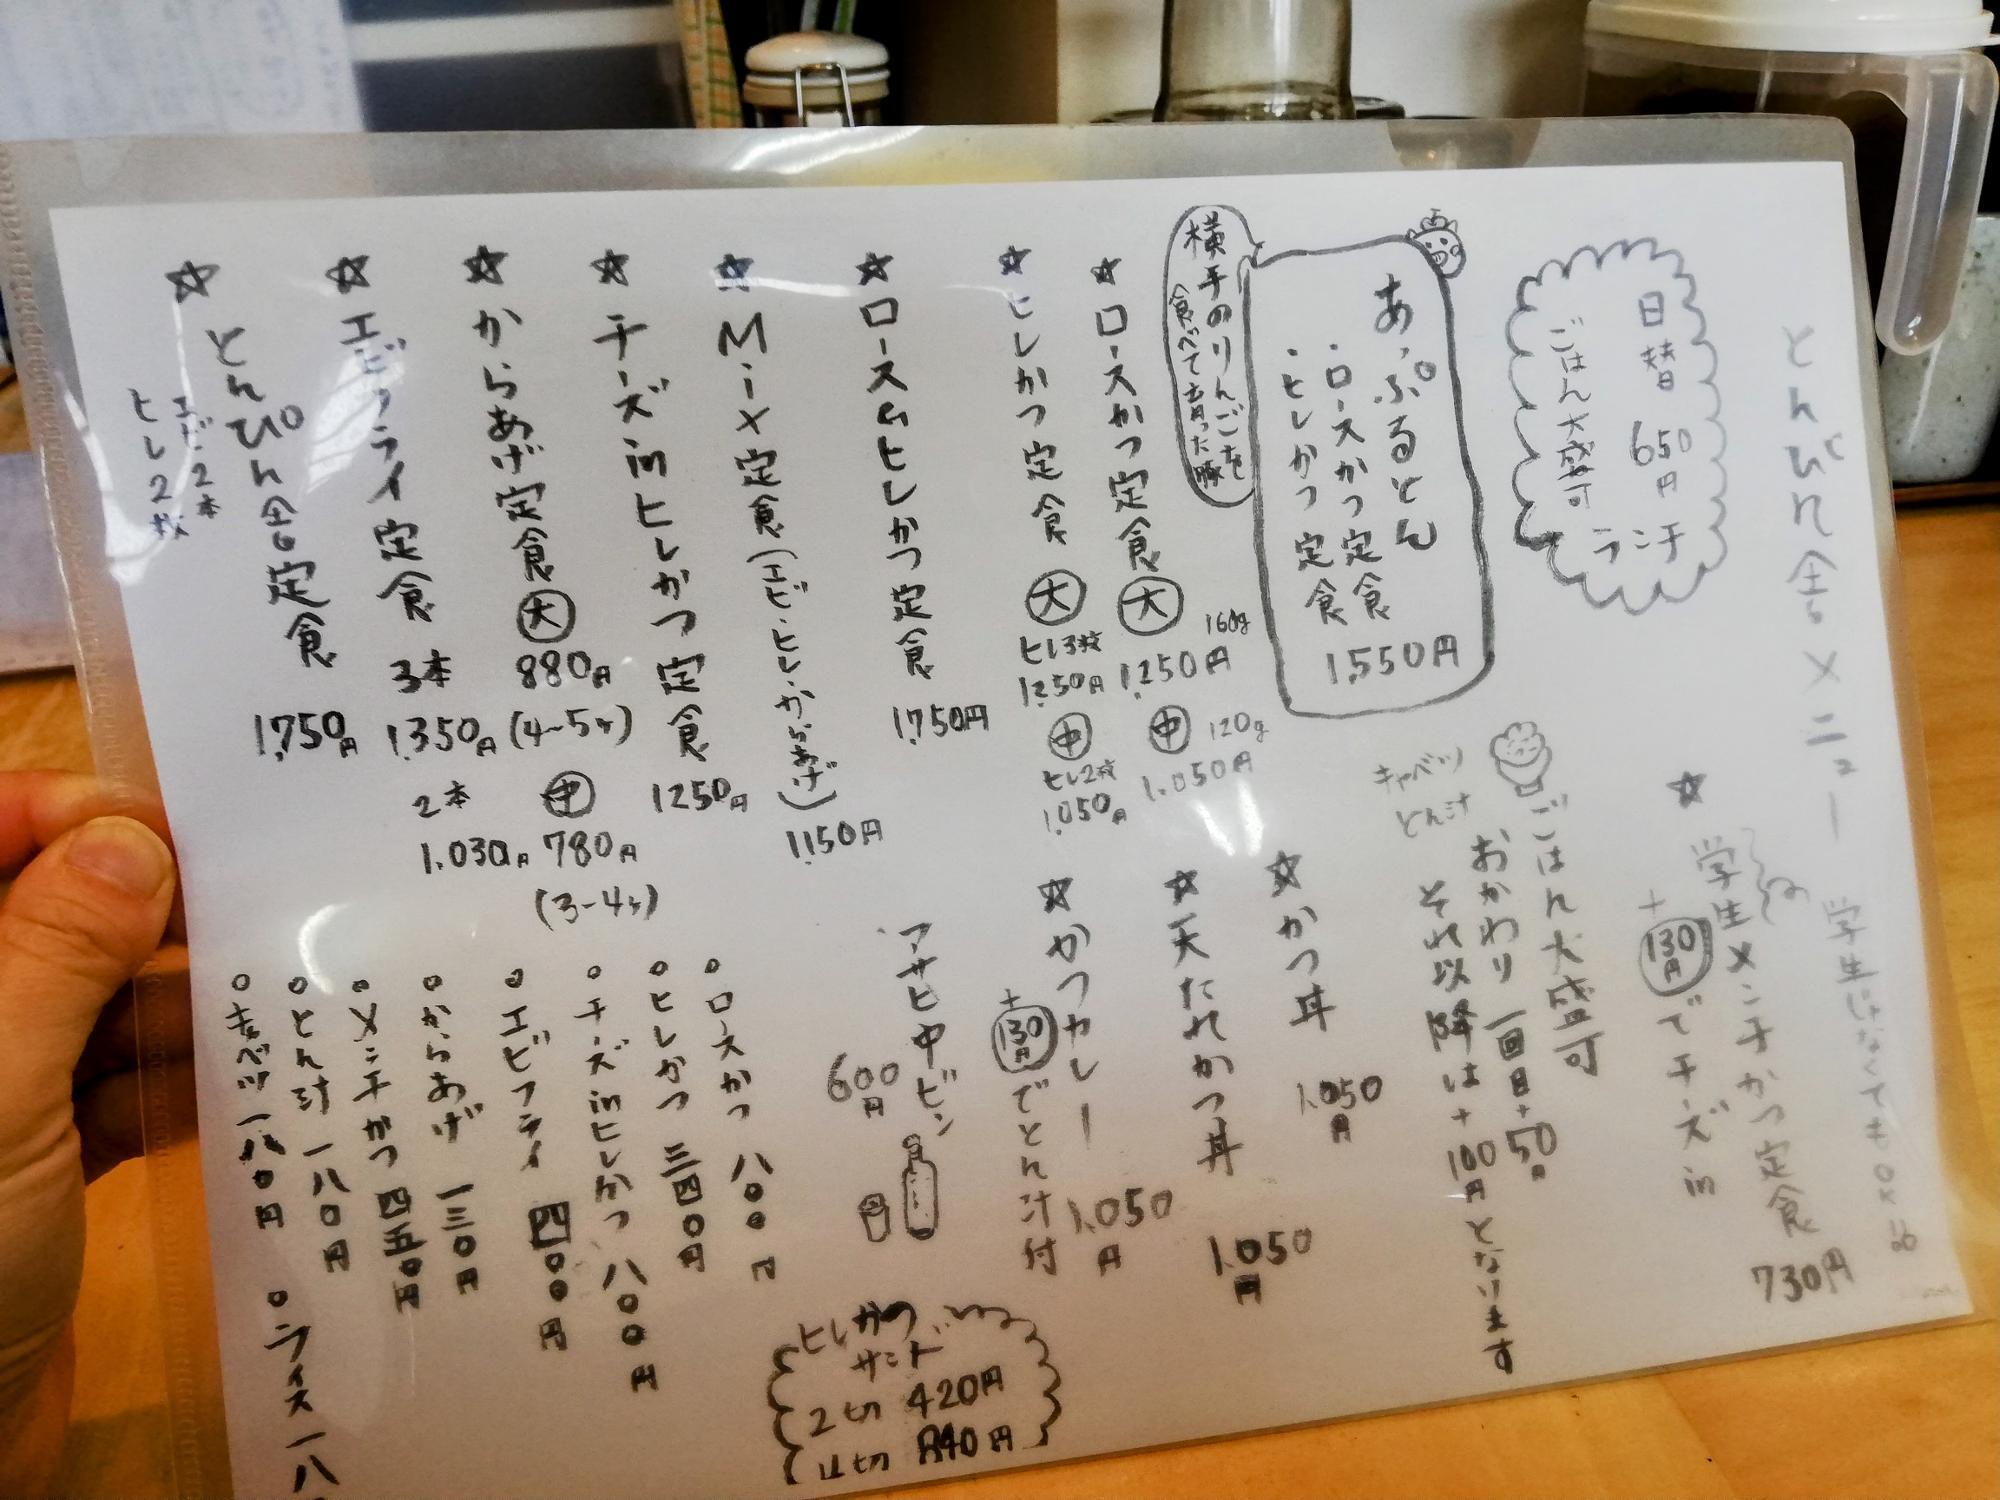 とんぴん舎メニュー
日替 650円
ランチ
ごはん大盛可
あっぷるとん
・ロースかつ定食
・ヒレかつ定食
1,550円
横手のりんごを
食べて育った豚
★ロースかつ定食 大 160g 1,250円 中 120g 1,050円
★ヒレかつ定食 大 ヒレ3枚 1,250円 中 ヒレ2枚 1,050円
★ロース&ヒレかつ定食 1,750円
★Mix定食(エビ・ヒレ・からあげ) 1,150円
★チーズinヒレかつ定食 1250円
★からあげ定食 大 880円 (4〜5ヶ) 中 780円 (3-4ヶ)
★エビフライ定食 3本 1,350円 2本 1,030円
★とんぴん舎定食 1,750円
エビ2本
ヒレ2枚
学生じゃなくてもOK
★学生メンチかつ定食 730円
+130円でチーズin
ごはん大盛可
おかわり一回目+50円
それ以降は+100円となります
キャベツ
とん汁
★かつ丼 1,050円
★天たれかつ丼 1,050円
★かつカレー 1,050円
+130円でとん汁付
アサヒ中ビン
600円
ヒレかつ
サンド
2切 420円
4切 840円
○ロースかつ 八〇〇円
○ヒレかつ 三四〇円
○チーズinヒレかつ 八〇〇円
○エビフライ 四〇〇円
○からあげ 一三〇円
○メンチかつ 四五〇円
○とん汁 一八〇円
○キャベツ 一八〇円
○ライス 一八